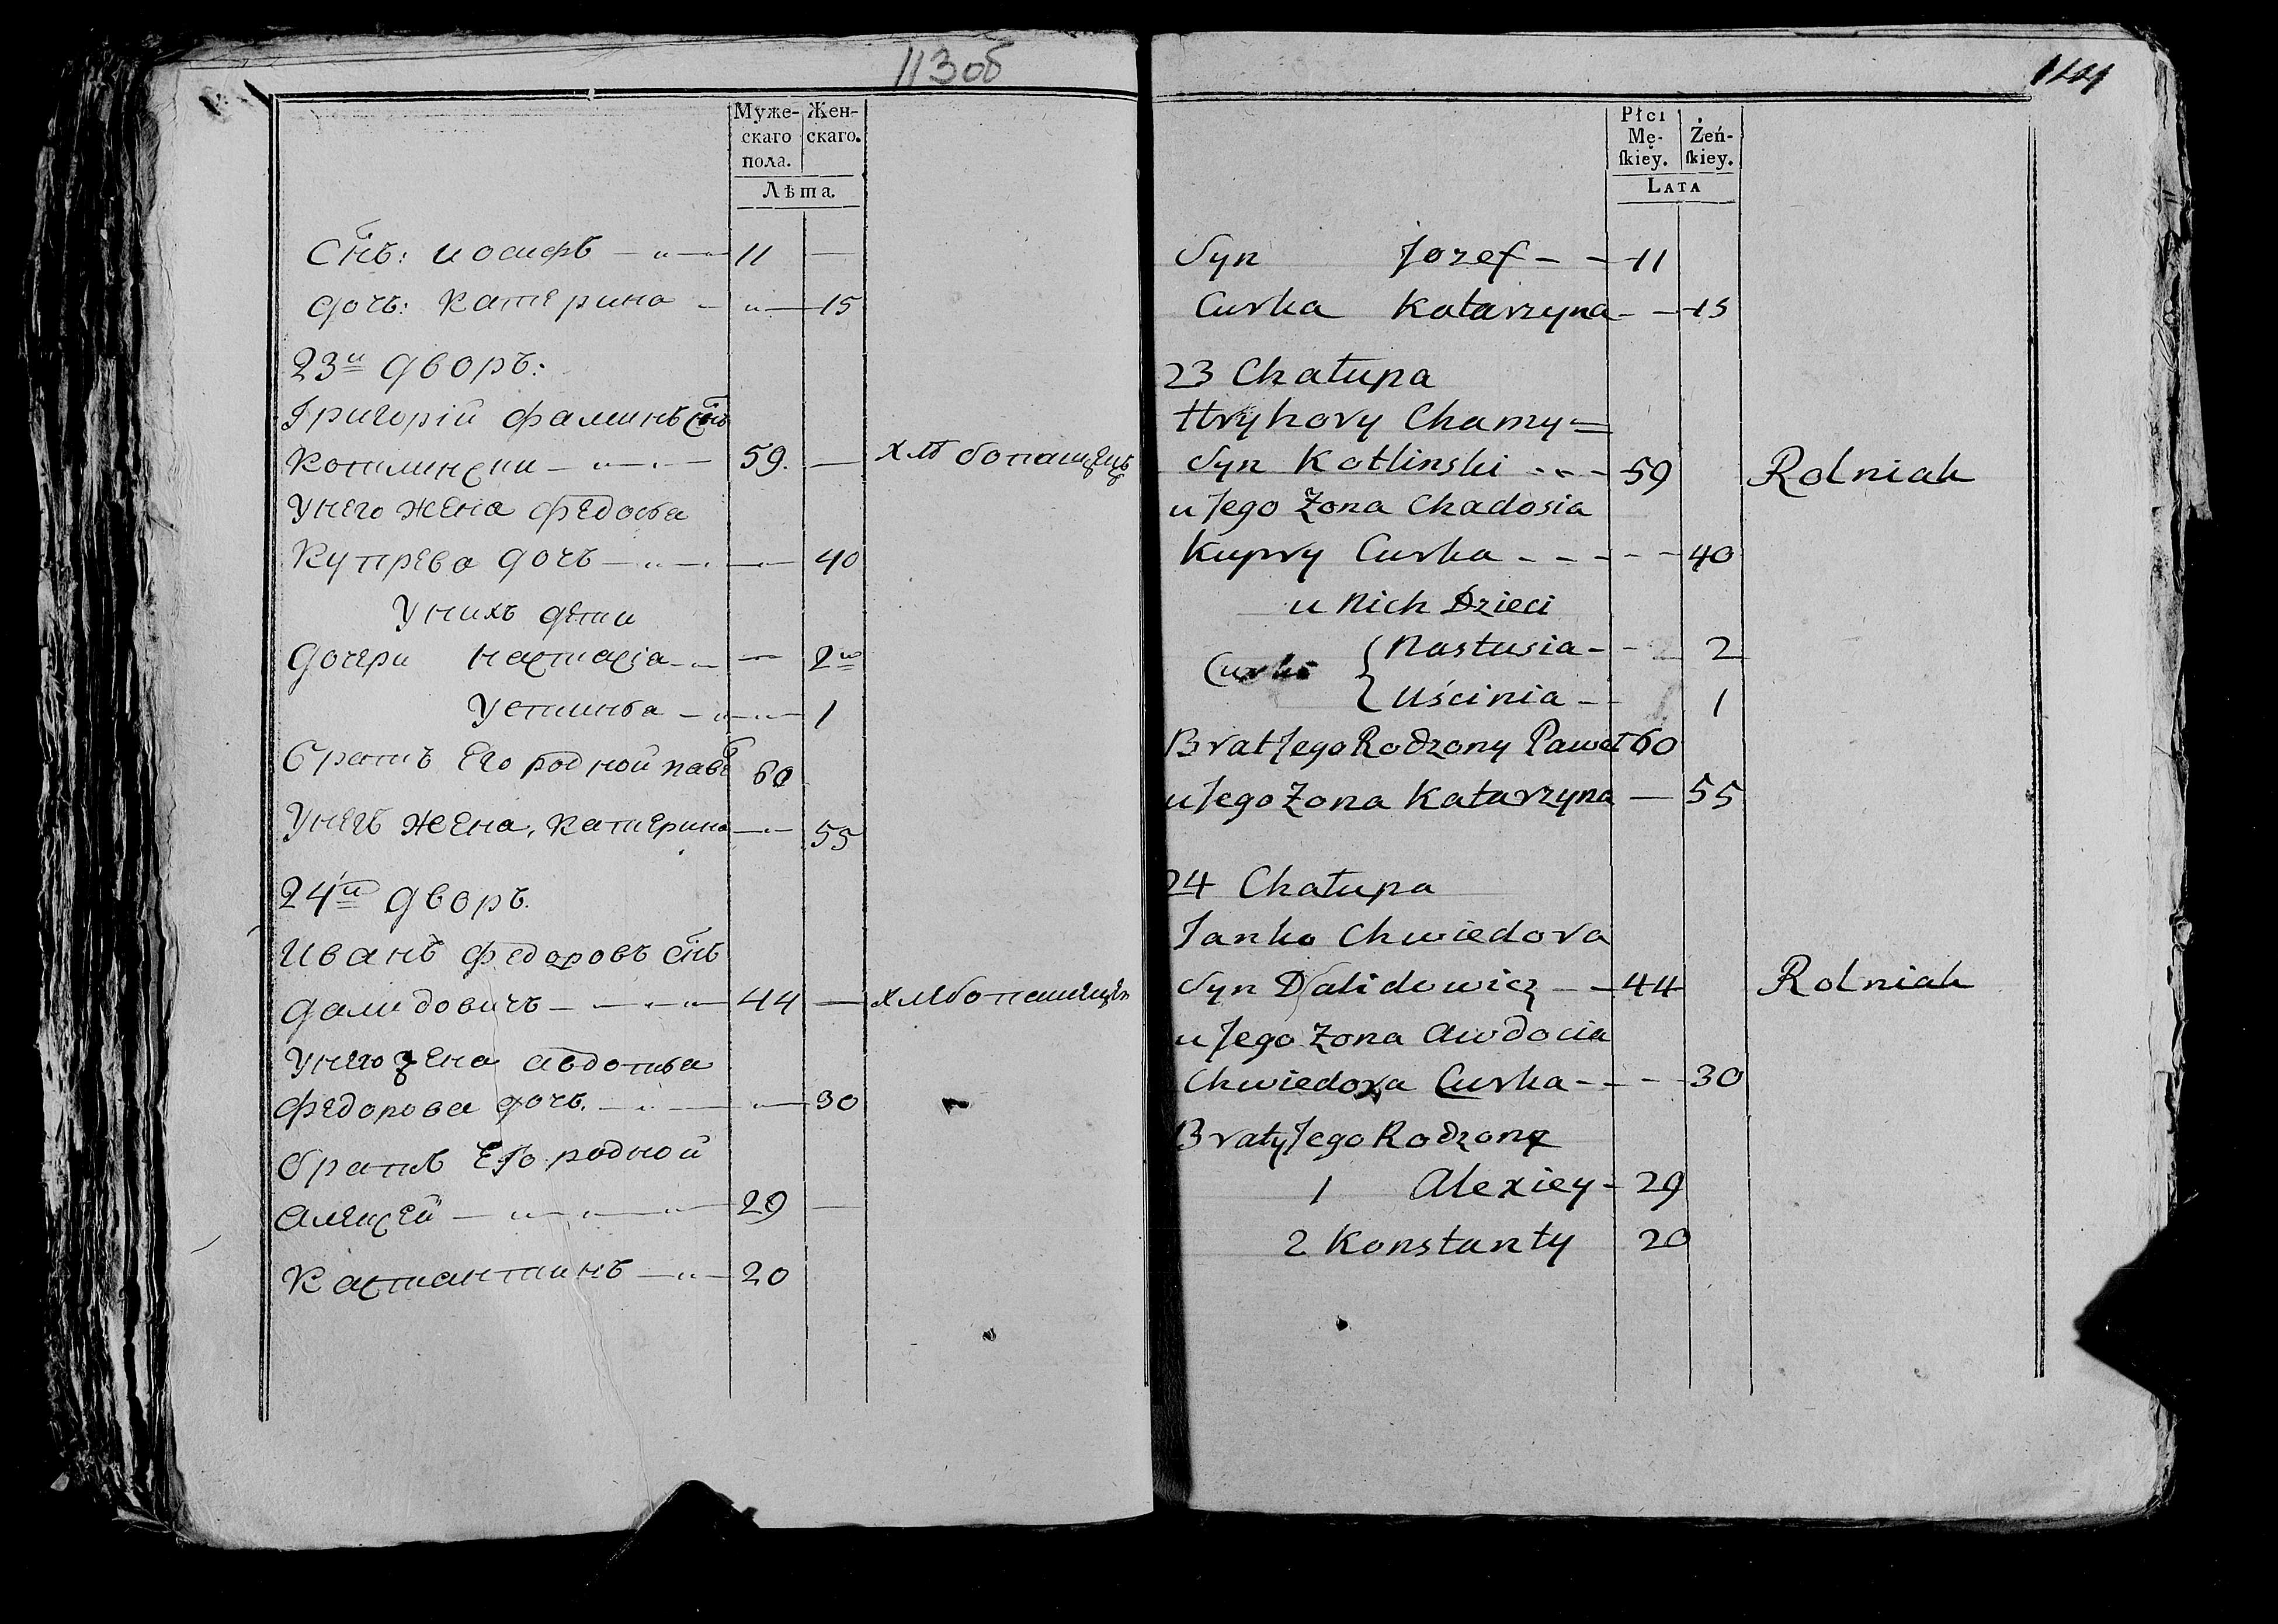 113об
Муже-
скаго
пола.
Жен-
скаго.
Лѣта.
Снъ: иосифъ 11
дочь: катерина 15
23й дворъ:
Григорій фаминъ снъ
Котлински 59. хлѣбопашецъ
Унего жена федосья
Купрева дочь 40
Унихъ дети
дочери настасіа 2
Устинья 1
братъ Его родной паве 60
Унегъ жена, катерина 55
24й дворъ.
Иванъ федоровъ снъ
далидовичъ 44 хлебопашецъ
Унего жена авдотья
федорова дочь. 30
братъ Его родной
алексей 29
Кастантинъ 20
114
Płci
Mę-
ſkiey.
Żeń-
ſkiey.
LATA
Syn Jozef 11
Curka Katarzyna 15
23 Chałupa
Hryhory Chamy=
Syn Kotlinski 59 Rolniak
u Jego Żona Chadosia
Kupry Curka 40
u Nich Dzieci
Curki Nastusia 2
Uścinia 1
Brat Jego Rodzony Paweł 60
u Jego Żona Katarzyna 55
24 Chałupa
Janko Chwiedora
Syn Dalidowicz 44 Rolniak
u Jego Żona Awdocia
Chwiedora Curka 30
Braty Jego Rodzony
1 Alexiey 29
2 Konstanty 20